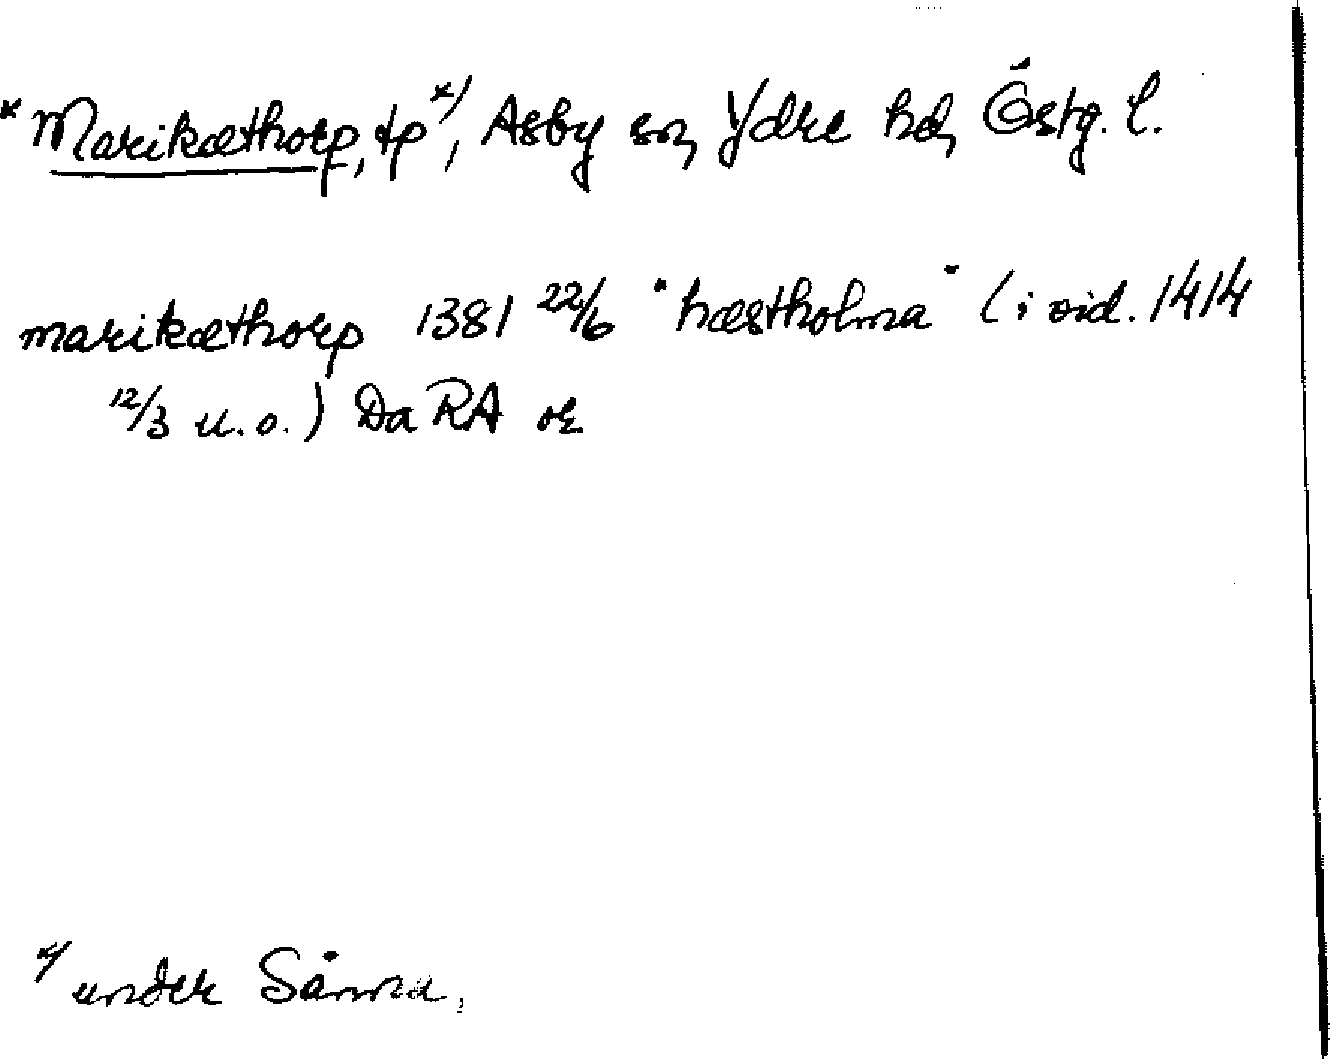 *Marikæthorp, tp x), Asby sn, Ydre hd, Östg. l.
marikæthorp 1381 22/6 "hæstholma" (i vid. 1414
12/3 u.o.) Da RA or
x) under Sänna,